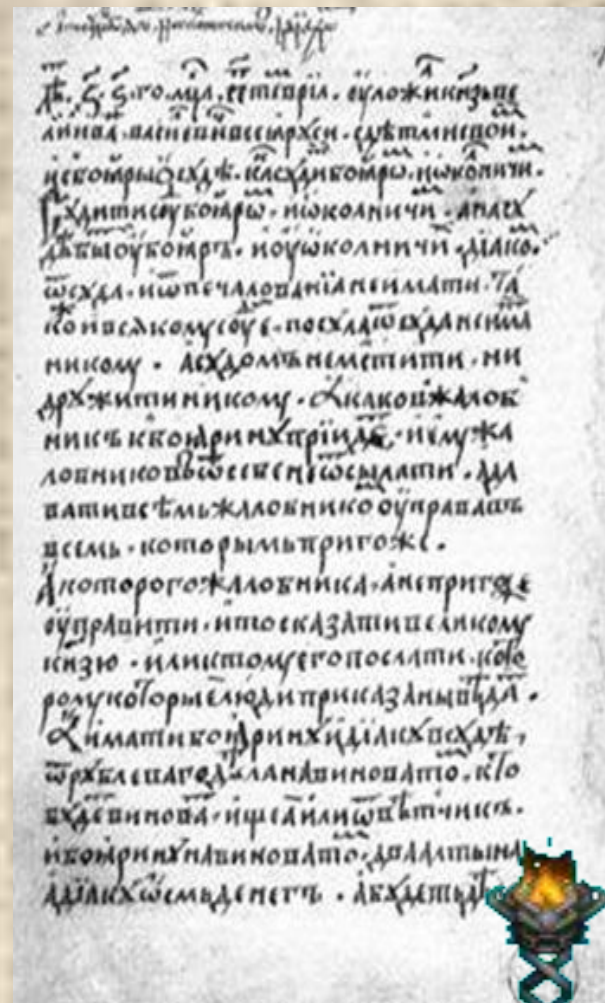 лѣ҃. ҂ꙅ҃. ꙅ.го. мцⷭ҇а. септеврїа. оуложи кнѧзь ве
лики іва. васиеви всеꙗ рꙋси. с дѣтми свои.
и с боꙗры ѡ сꙋдѣ. каⷦ сꙋди боꙗрѡ. и ѡконичи.
Сꙋдити сꙋ боꙗрѡ. и ѡколничи. а на сꙋ
дѣ бы оу боꙗръ. и оу ѡколничи. дїако.
ѿ сꙋда. и ѿ печалованїа не имати. та
ко и всякому соуе. посула ѿ сꙋда не има
никому. а сꙋдомъ не мстити. ни
дрꙋжити никому. А каков жалоб
никъ к боꙗринꙋ прїиде. и ему жа
лобниковъ ѿ себе не ѿсылати. а да
вати всѣмь жалобнико оуправа въ
всемь. которымь пригоже.
А которого жалобника. а не пригоже
оуправити. и то сказати великому
кнзю. или к тому его послати. кото
рому которые люди приказаны вѣда.
А имати боꙗринꙋ и дїакꙋ в сꙋдѣ.
ѿ рꙋблеваго дѣла на виновато. кто
бꙋде винова. ищеа или ѿвѣтчикъ.
и боꙗринꙋ на виновато. два алтына
а дїакꙋ ѡсмь денегъ. а бꙋдеть дѣ